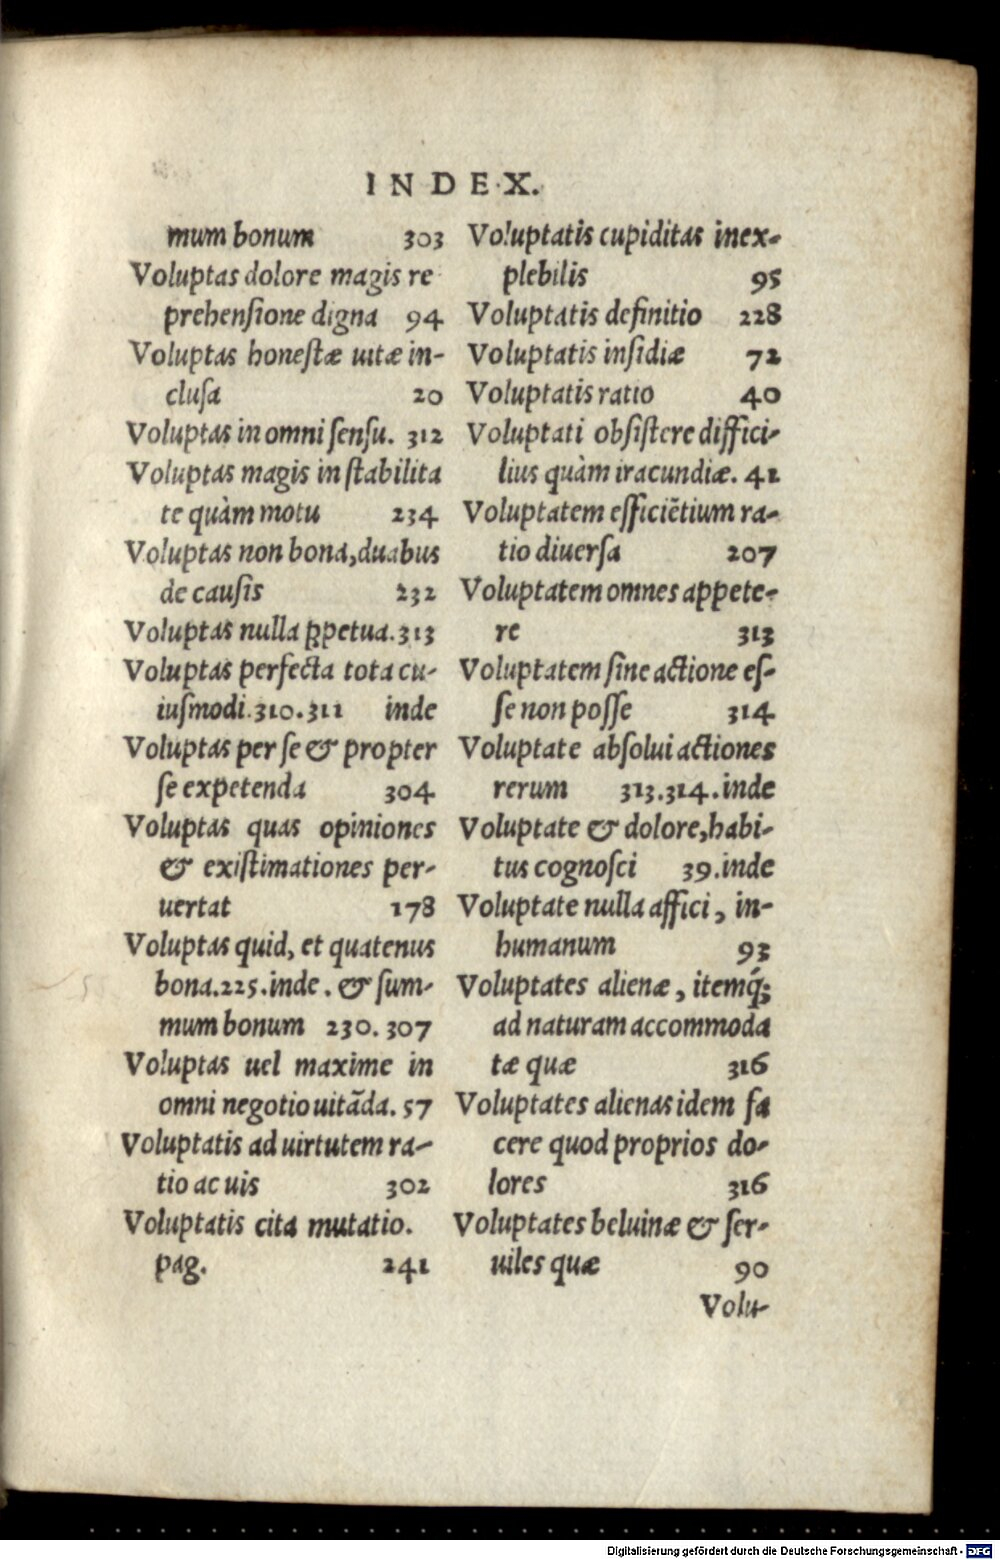 INDEX.
mum bonum 303
Voluptas dolore magis re
prehensione digna 94
Voluptas honestæ uitæ in-
clusa 20
Voluptas in omni sensu. 312
Voluptas magis in stabilita
te quàm motu 234
Voluptas non bona, duabus
de causis 232
Voluptas nulla ꝑpetua. 313
Voluptas perfecta tota cu-
iusmodi. 310. 311 inde
Voluptas per se & propter
se expetenda 304
Voluptas quas opiniones
& existimationes per-
uertat 178
Voluptas quid, et quatenus
bona. 225. inde. & sum-
mum bonum 230. 307
Voluptas uel maxime in
omni negotio uitāda. 57
Voluptatis ad uirtutem ra-
tio ac uis 302
Voluptatis cita mutatio.
pag. 241
Voluptatis cupiditas inex-
plebilis 95
Voluptatis definitio 228
Voluptatis insidiæ 72
Voluptatis ratio 40
Voluptati obsistere diffici-
lius quàm iracundiæ. 41
Voluptatem efficiētium ra-
tio diuersa 207
Voluptatem omnes appete-
re 313
Voluptatem sine actione es-
se non posse 314
Voluptate absolui actiones
rerum 313. 314. inde
Voluptate & dolore, habi-
tus cognosci 39. inde
Voluptate nulla affici, in-
humanum 93
Voluptates alienæ, itemq́;
ad naturam accommoda
tæ quæ 316
Voluptates alienas idem fa
cere quod proprios do-
lores 316
Voluptates beluinæ & ser-
uiles quæ 90
Volu-
Digitalisierung gefördert durch die Deutsche Forschungsgemeinschaft - DFG